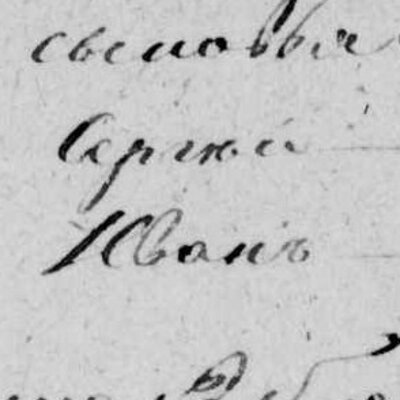 сыновья
Сергѣй
Иванъ